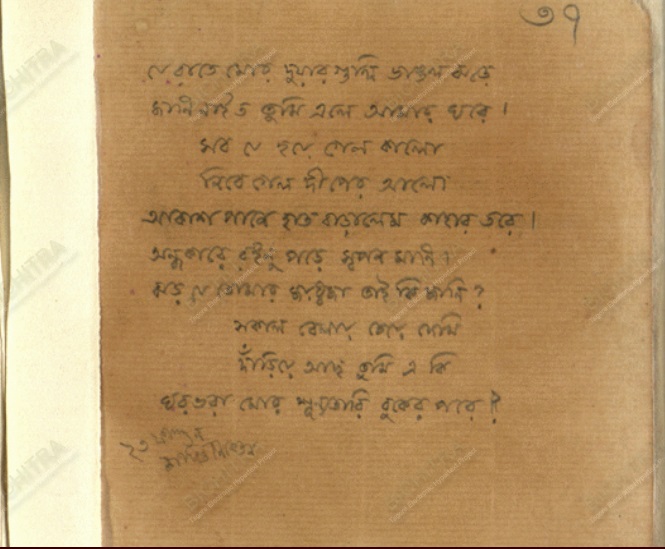 ৩৭
যে রাতে মোর দুয়ারগুলি ভাঙল ঝড়ে
জানি নাই ত তুমি এলে আমার ঘরে।
সব যে হয়ে গেল কালো
নিবে গেল দীপের আলো
আকাশ পানে হাত বাড়ালেম কাহার তরে।
অন্ধকারে রইনু পড়ে স্বপন মানি।
ঝড় যে তোমার জয়ধ্বজা তাই কি জানি?
সকাল বেলায় চেয়ে দেখি
দাঁড়িয়ে আছ তুমি এ কি
ঘরভরা মোর শূন্যতারি বুকের পরে?
২৩ ফাল্গুন
শান্তিনিকেতন